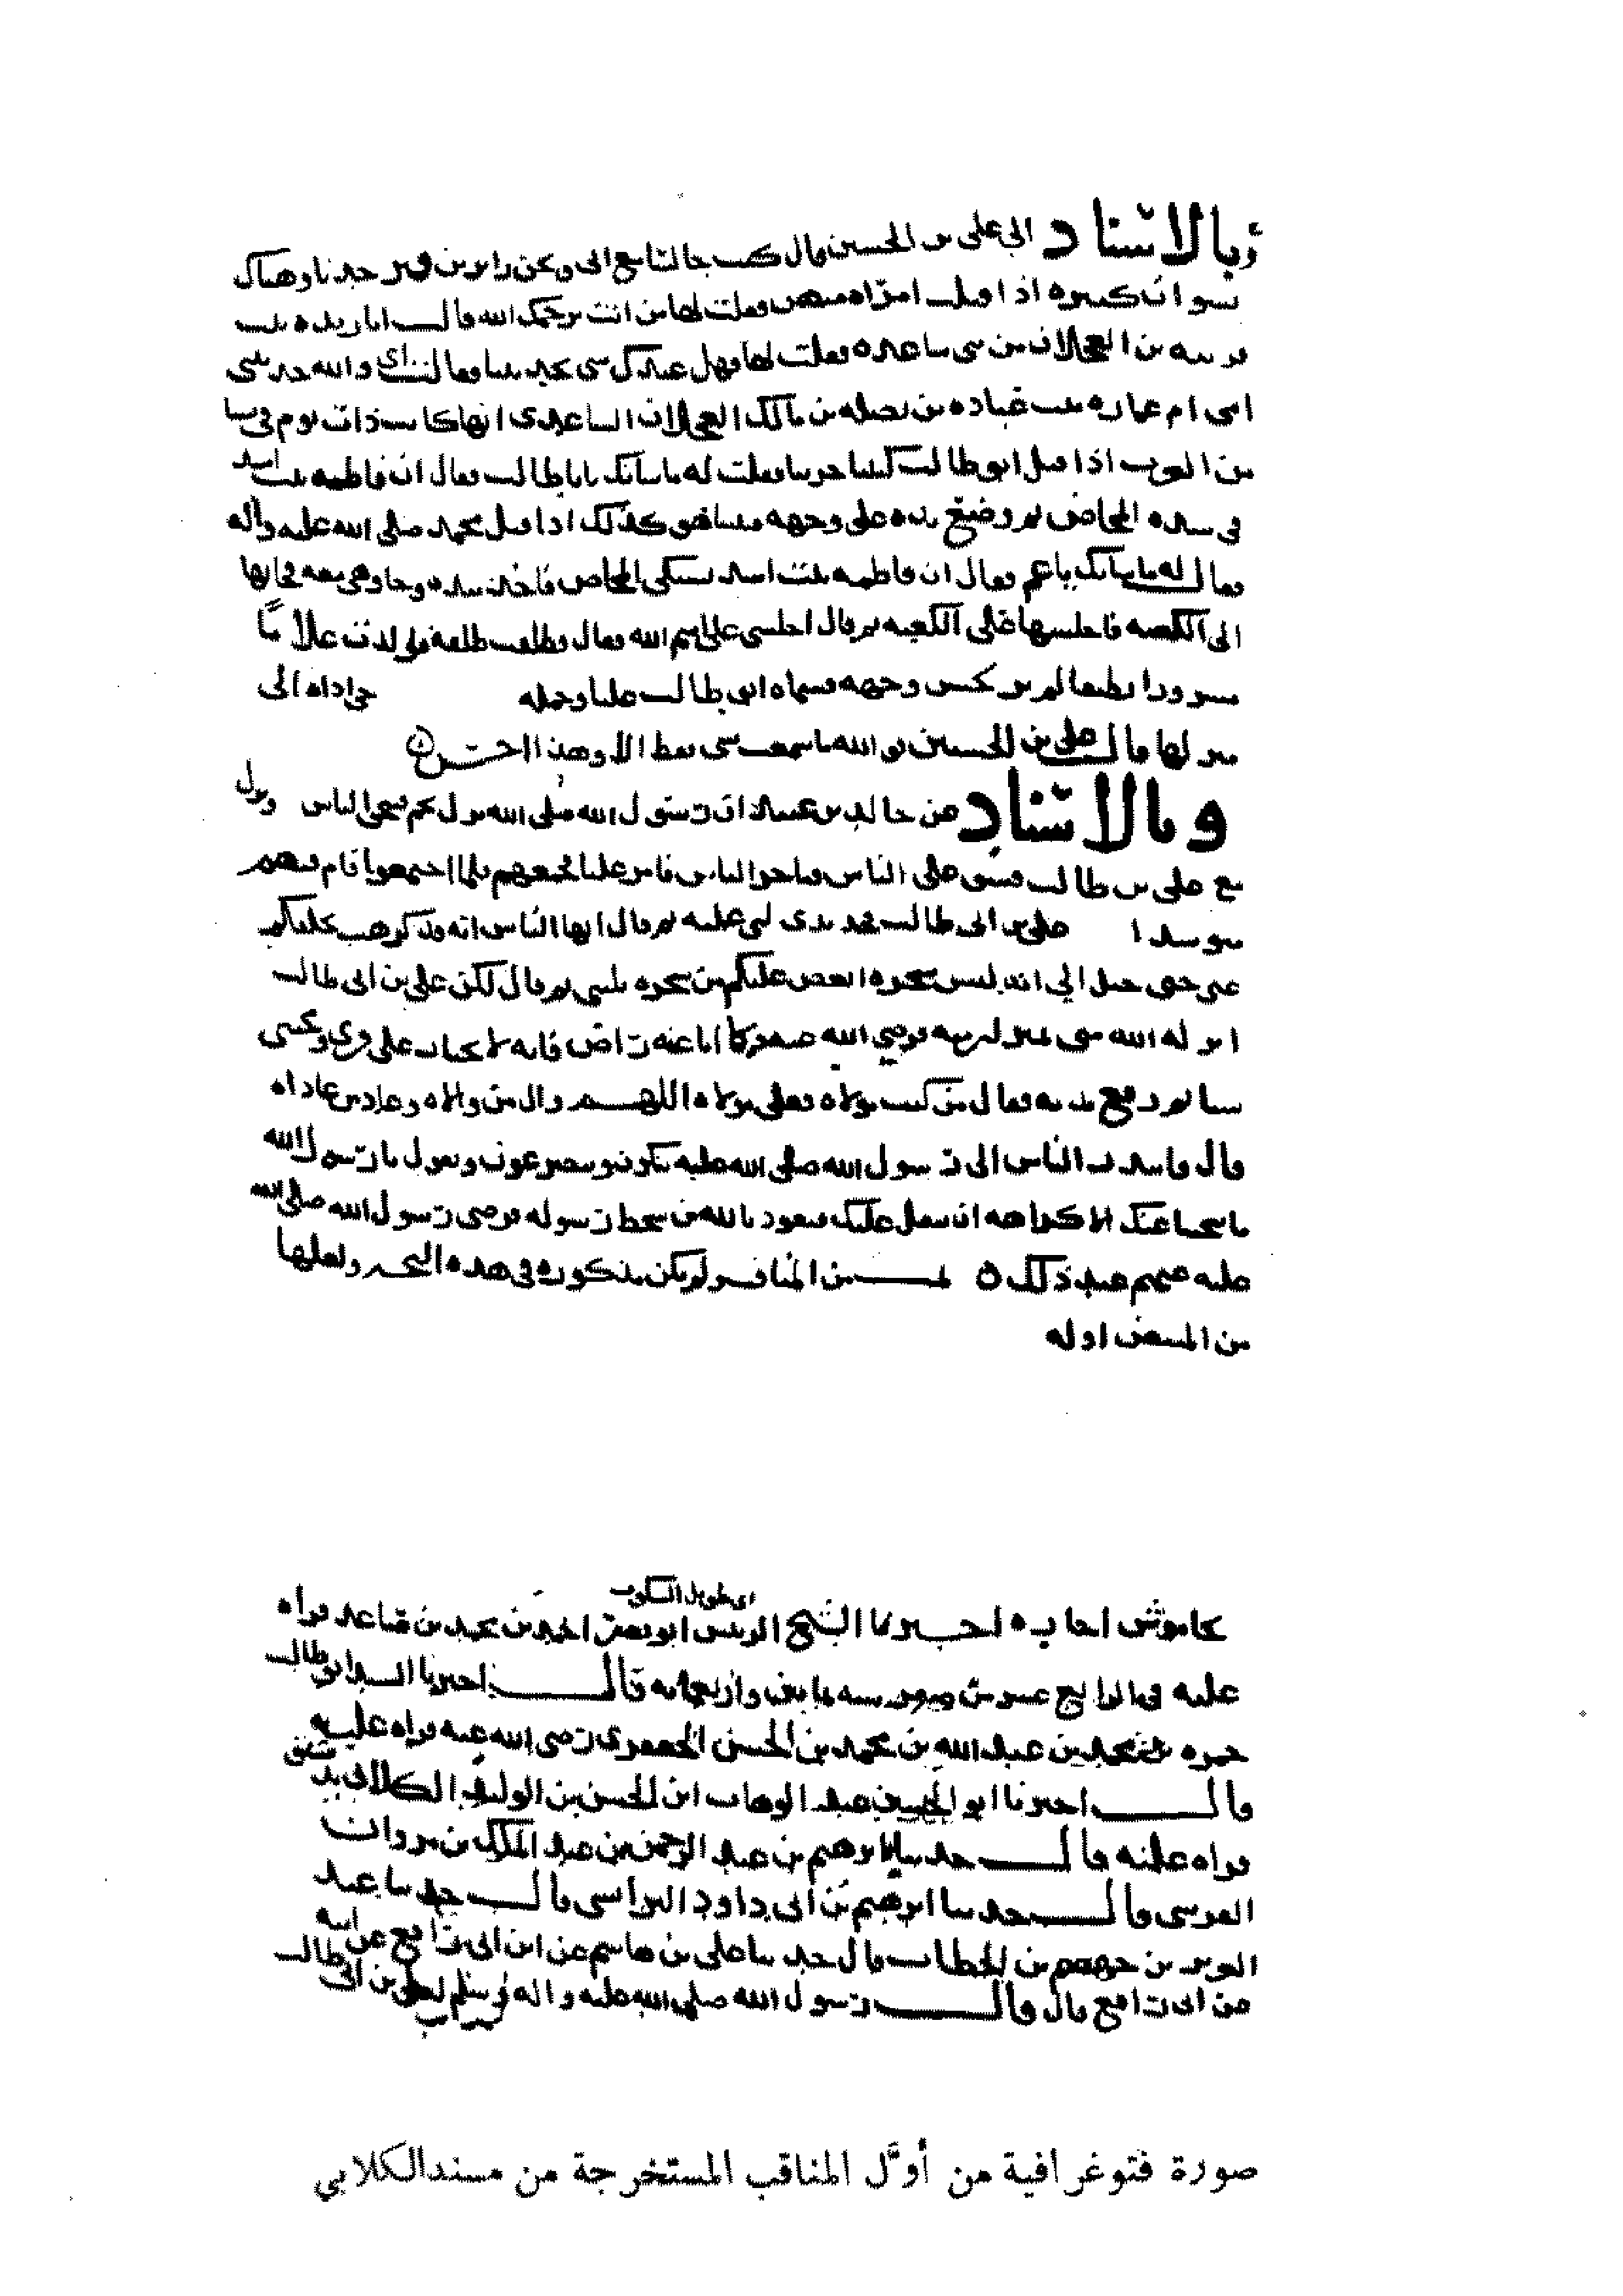 وبالاسناد الى على بن الحسين قال كنت جالسا مع ابى ونحن زايرين قبر جدنا وهناك
نسوان كثيره اذ اقبلت امراه منهن فقلت لها من انت يرحمك الله قالت انا زيده بنت
من بنى ساعده فقلت لها وهل عندك شى تحدثينا فقالت اى والله حدثتنى
امى ام عماره بنت عباده بن نضله بن مالك العجلان الساعدى انها كانت ذات يوم فى نسا
من العرب اذ اقبل ابو طالب كئيبا حزينا فقلت له ما شانك يابا طالب فقال ان فاطمه بنت اسد
فى شده المخاض ثم وضع يده على وجهه فبينا هو كذلك اذ اقبل محمد صلى الله عليه واله
فقال له ما شانك ياعم فقال ان فاطمه بنت اسد تشتكى المخاض فاخذ بيده وجا وهى معه فجا بها
الى الكعبه فاجلسها فى الكعبه ثم قال اجلسى على اسم الله فقال فطلقت طلقه فولدت غلاما
مسرورا نظيفا لم ير كحسن وجهه فسماه ابو طالب عليا وحمله حتى اداه الى
منزلها قال على بن الحسين فو الله ما سمعت بشى قط الا وهذا احسن
وبالاسناد عن رسول الله صلى الله نزل بخم فتنحى الناس ونزل
مع على بن طالب فشق على الناس فامر عليا فجمعهم فلما اجتمعوا قام فيهم
متوسدا على بن ابى طالب فحمد ثم قال ايها الناس انه قد كرهت تخلفكم
عنى حتى خيل الى انه ليس شجره ابغض عليكم من شجره تلينى ثم قال لكن على بن ابى طالب
انزله الله منى بمنزلتى منه فرضى الله عنه كما انا عنه راض فانه لا يختار على قربى ومحبتى
شيا ثم رفع يديه فقال من كنت مولاه فعلى مولاه اللهم وال من والاه وعاد من عاداه
قال فابتدر الناس الى رسول الله صلى الله عليه يبكون ويتضرعون ويقول يا رسول الله
ما تنحينا عنك الا كراهه ان نثقل عليك فنعوذ بالله من سخط رسوله فرضى رسول الله صلى الله
عليه عنهم عند ذلك من المناقب لم يكن مذكوره فى هذه النسخه ولعلها
من اوله
اى طويل السكوت
اخبرنا الشيخ الرئيس احمد بن محمد بن صاعد قراه
عليه فى الرابع عشر من قال اخبرنا السيد ابو طالب
حمزه بن محمد بن عبد الله بن محمد بن الحسن الجعفرى رضى الله عنه قراه عليه
قال اخبرنا ابو الحسين عبد الوهاب ابن الحسن بن الوليد الكلابى بدمشق
قراه عليه قال حدثنا ابرهيم بن عبد الرحمن بن عبد الملك بن مروان
القرشى قال حدثنا ابرهيم بن ابى داود البرلسى قال حدثنا عبد
العزيز بن الخطاب قال حدثنا على بن هاشم عن ابن ابى رافع عن ابيه
عن ابى رافع قال قال رسول الله صلى الله عليه واله وسلم لعلى بن ابى طالب
صورة فتوغرافية من أوَّل المناقب المستخرجة من مسندالكلابي